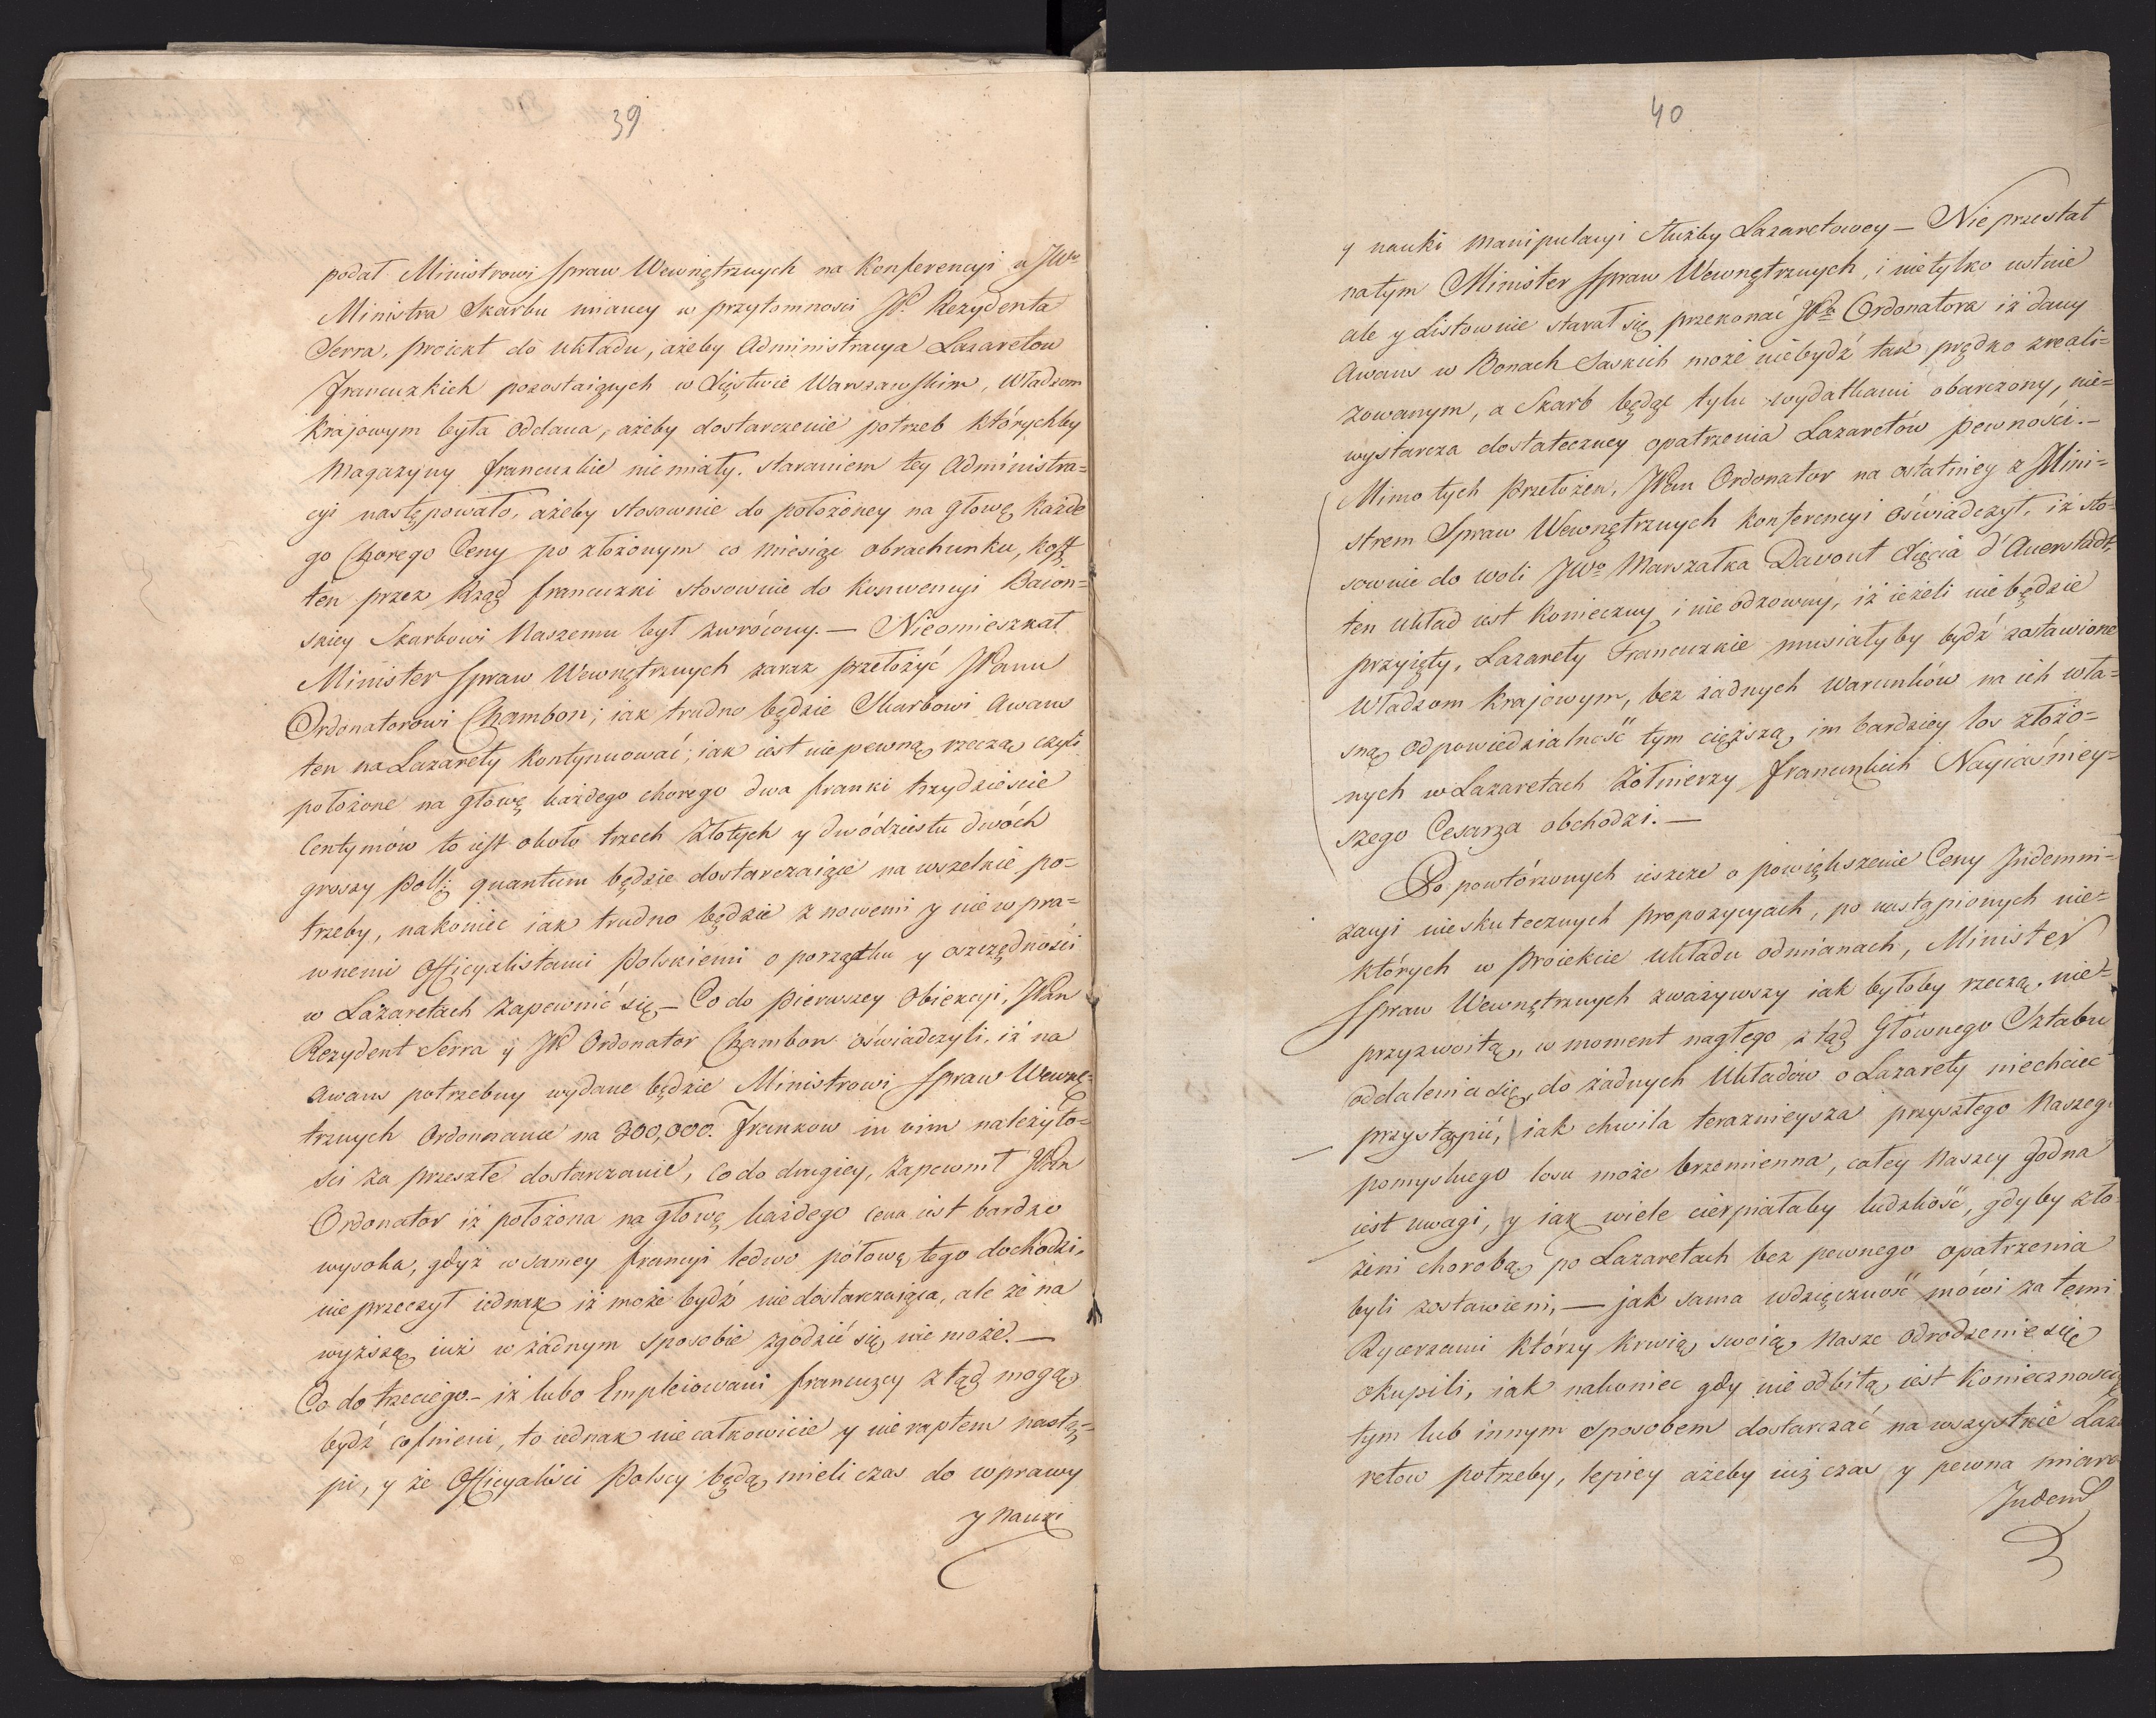 39
podał Ministrowi Spraw Wewnętrznych na Konferencyi u JWo
Ministra Skarbu mianey w przytomnosci JP. Rezydenta
Serra, proiekt do układu, ażeby Administracya Lazaretow
francuzkich pozostaiących w Xięstwie Warszawskim, Władzom
Krajowym była oddana, ażeby dostarczenie potrzeb którychby
Magazyny francuzkie niemiały. staraniem tey Administra=
cyi następowało, ażeby stosownie do położoney na głowę każde
go Chorego Ceny po złożonym co miesiąc obrachunku, koszt
ten przez Rząd francuzki stosownie do Konwencyi Baion=
skiey Skarbowi Naszemu był zwrócony. — Nieomieszkał
Minister Spraw Wewnętrznych zaraz przełożyć JPanu
Ordonatorowi Chambon; iak trudno będzie Skarbowi Awans
ten na Lazarety kontynuować; iak iest niepewną rzeczą czyli
położone na głowę każdego chorego dwa franki trzydzieście
Centymów to iest około trzech Złotych y dwódziestu dwóch
groszy Pols: quantum będzie dostarczaiące na wszelkie po=
trzeby, nakoniec iak trudno będzie z nowemi y niewpra=
wnemi Officyalistami Polskiemi o porządku y oszczędności
w Lazaretach zapewnić się, — Co do pierwszey Obiekcyi, JPan
Rezydent Serra y JP Ordonator Chambon oświadczyli, iż na
awans potrzebny wydane będzie Ministrowi Spraw Wewnę=
trznych Ordonnance na 300,000. Franków in vim należyto=
ści za przeszłe dostarczanie, co do drugiey, Zapewnił JPan
Ordonator iż położona na głowę każdego cena iest bardzo
wysoka, gdyż w samey francyi ledwo połowę tego dochodzi,
nie przeczył iednak iż może bydź niedostarczaiąca, ale że na
wyższą iuż w żadnym sposobie zgodzić się nie może. —
Co do trzeciego — iż lubo Empleiowani francuzcy ztąd mogą
bydź cofnieni, to iednak nie całkowicie y nie raptem nastą=
pi, y że Officyaliści Polscy będą mieli czas do wprawy
y Nauki
40
y nauki manipulacyi służby Lazaretowey — Nieprzestał
natym Minister Spraw Wewnętrznych, i nietylko ustnie
ale y Listownie starał się przekonać JPa Ordonatora iż dany
Awans w Bonach Saskich może niebydź tak prędko zreali=
zowanym, a Skarb będąc tylu wydatkami obarczony, nie=
wystarcza dostateczney opatrzenia Lazaretów pewności. —
Mimo tych Przełożen, JPan Ordonator na ostatniey z Mini=
strem Spraw Wewnętrznych konferencyi oświadczył, iż sto=
sownie do woli JWo Marszałka Davout Xięcia d'Auerstadt,
ten układ iest konieczny i nieodzowny, iż ieżeli niebędzie
przyięty, Lazarety Francuzkie musiałyby bydź zostawione
Władzom Krajowym, bez żadnych warunków na ich wła=
sną odpowiedzialność tym cięższą, im bardziey los złożo=
nych w Lazaretach Żołnierzy francuzkich Nayiaśniey=
szego Cesarza obchodzi. —
Po powtórzonych ieszcze o powiększenie Ceny Indemni=
zacyi nieskutecznych propozycyach, po nastąpionych nie=
których w Proiekcie Układu odmianach, Minister
Spraw Wewnętrznych zważywszy iak byłoby rzeczą nie=
przyzwoitą, w moment nagłego ztąd Głównego Sztabu
oddalenia się, do żadnych Układów o Lazarety niechcieć
przystąpić, iak chwila teraznieysza przyszłego Naszego
pomyslnego losu może brzemienna, całey Naszey godna
iest uwagi, y iak wiele cierpiałaby ludzkość, gdyby zło=
żeni chorobą, po Lazaretach bez pewnego opatrzenia
byli zostawieni, — jak sama wdzięczność mówi za temi
Rycerzami którzy krwią swoią Nasze odrodzenie się
okupili, iak nakoniec gdy nieodbitą iest koniecznością
tym lub innym sposobem dostarczać na wszystkie Laza
retow potrzeby, lepiey ażeby iuż czas y pewna miara
Indem